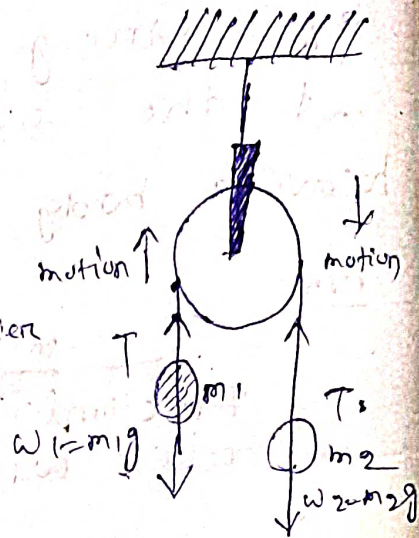 motion
motion
T
m1
w1=m1g
T
m2
w2=m2g